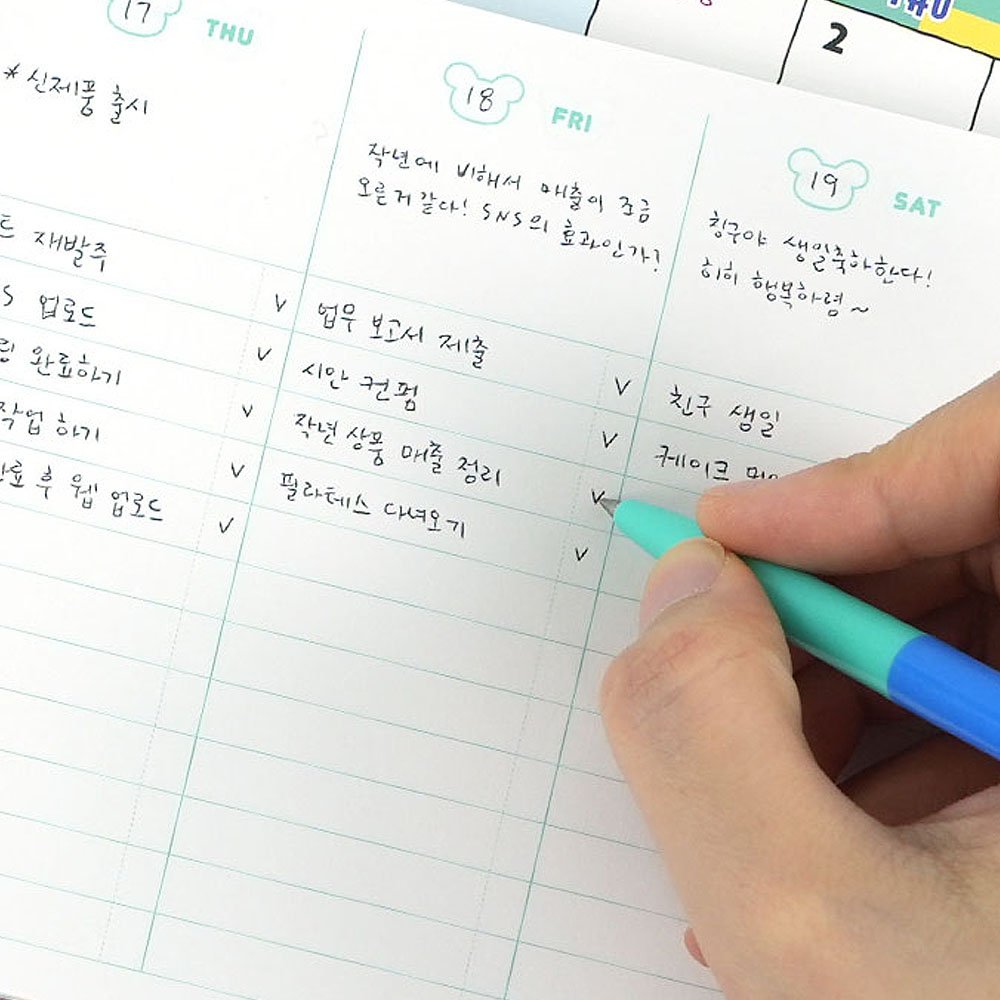 17 THU
* 신제품 출시
재발주
업로드
완료하기
작업 하기
후 웹 업로드
18 FRI
작년에 비해서 매출이 조금
오른거 같다! SNS의 효과인가?
업무 보고서 제출
시안 컨펌
작년 상품 매출 정리
필라테스 다녀오기
19 SAT
칭구야 생일축하한다!
히히 행복하렴~
친구 생일
케이크
THU
2